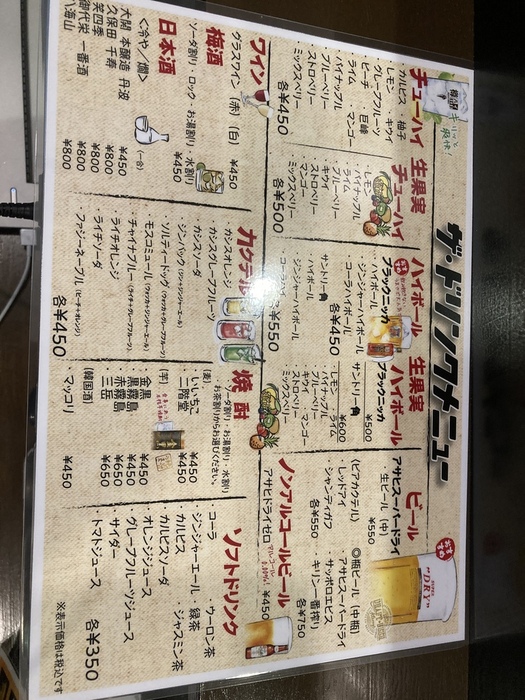 ザ・ドリンクメニュー
チューハイ
カルピス ・柚子
レモン ・キウイ
グレープフルーツ
ピーチ ・巨峰
ライム ・マンゴー
パイナップル
ブルーベリー
ストロベリー
ミックスベリー
各¥450
生果実
チューハイ
・レモン
・ライム
・パイナップル
・ブルーベリー
・キウイ
・ストロベリー
・マンゴー
・ミックスベリー
各¥500
ハイボール
ブラックニッカ
・ハイボール
・ジンジャーハイボール
・コーラハイボール
各¥450
サントリー角
・ハイボール
・ジンジャーハイボール
・コークハイ
各¥550
生果実
ハイボール
ブラックニッカ
¥500
サントリー角
¥600
・レモン ・ライム
・パイナップル
・ブルーベリー
・キウイ ・マンゴー
・ストロベリー
・ミックスベリー
ビール
おすすめ
アサヒスーパードライ
・生ビール(中)
¥550
(ビアカクテル)
・レッドアイ
・シャンディガフ
各¥550
◎瓶ビール(中瓶)
・アサヒスーパードライ
・サッポロエビス
・キリン一番搾り
各¥750
ノンアルコールビール
アサヒドライゼロ
¥450
ワイン
グラスワイン(赤)(白)
¥450
梅酒
ソーダ割り・ロック・お湯割り・水割り
¥450
日本酒
<冷や/燗>
(一合)
大関 本醸造 丹波 ¥450
久保田 千寿 ¥800
笑四季 ¥800
御代栄 一番酒 ¥800
八海山 ¥800
カクテル
・カシスオレンジ
・カシスグレープフルーツ
・カシスソーダ
・ジンバック(ジン+ジンジャーエール)
・ソルティードッグ(ウォッカ+グレープフルーツ)
・モスコミュール(ウォッカ+ジンジャーエール)
・チャイナブルー(ライチ+グレープフルーツ)
・ライチオレンジ
・ライチソーダ
・ファジーネーブル(ピーチ+オレンジ)
各¥450
焼酎
ソーダ割り・お湯割り・水割り
お茶割りからお選びください。
(麦)
・いいちこ ¥450
・二階堂 ¥450
(芋)
金黒 ¥450
黒霧島 ¥450
赤霧島 ¥650
三岳 ¥650
(韓国酒)
マッコリ ¥450
ソフトドリンク
・コーラ ・ウーロン茶
・ジンジャーエール ・緑茶
・カルピス ・ジャスミン茶
・カルピスソーダ
・オレンジジュース
・グレープフルーツジュース
・サイダー
・トマトジュース
各¥350
※表示価格は税込です